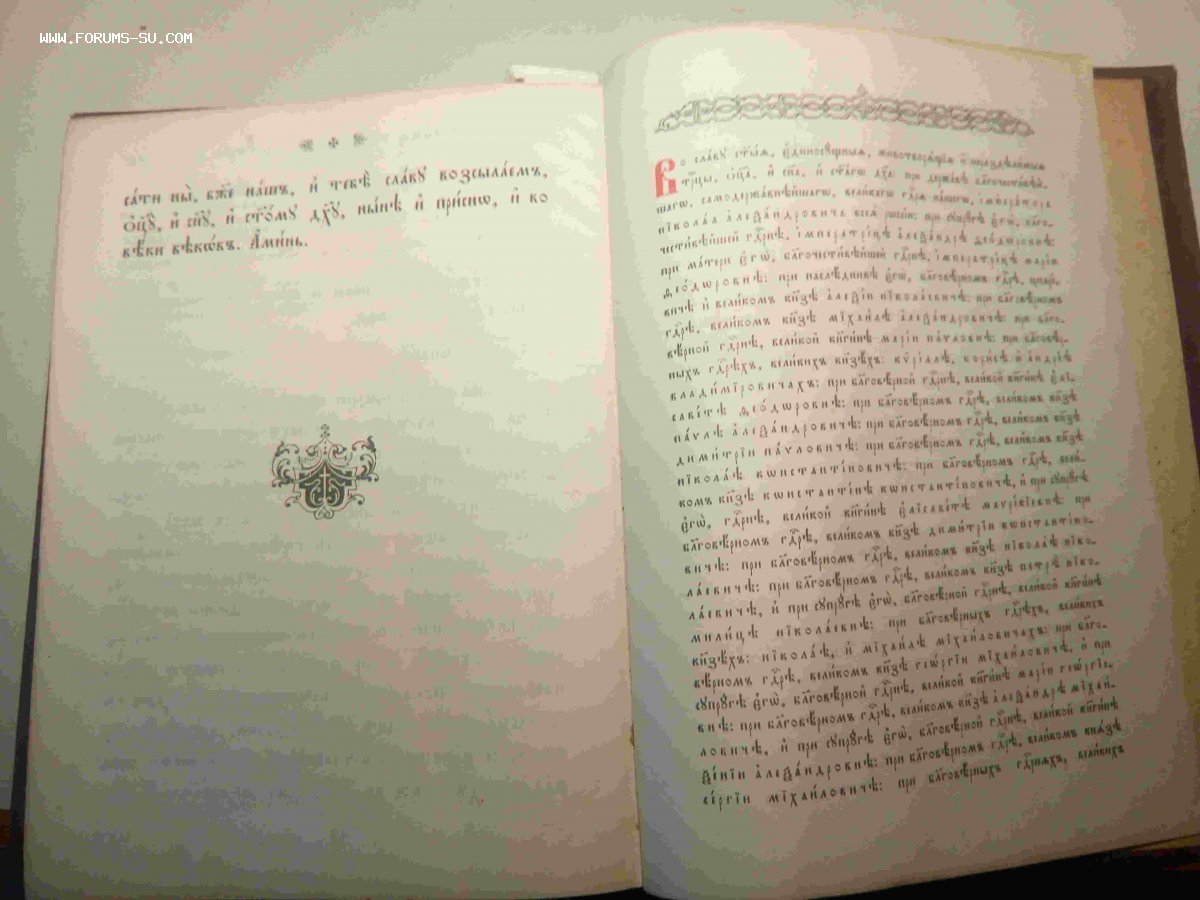 WWW.FORUMS-SU.COM
са́ти ны̀, бж҃е на́шъ, и҆ тебѣ̀ сла́вꙋ возсыла́емъ,
ѻ҆ц҃ꙋ̀, и҆ сн҃ꙋ, и҆ ст҃о́мꙋ дх҃ꙋ, ны́нѣ и҆ при́снѡ, и҆ во
вѣ́ки вѣкѡ́въ. А҆ми́нь.
Во сла́вꙋ ст҃ы́ѧ, є҆диносꙋ́щныѧ, животворѧ́щїѧ и҆ нераздѣ́льныѧ
трⷪ҇цы, ѻ҆ц҃а̀, и҆ сн҃а, и҆ ст҃а́гѡ дх҃а: при держа́вѣ бл҃гочести́вѣй-
шагѡ, самодержа́внѣйшагѡ, вели́кагѡ гдⷭ҇рѧ на́шегѡ, і҆мпера́тора
нїкола́а а҆леѯа́ндровича всеѧ̀ рѡссі́и: при сꙋпрꙋ́гѣ є҆гѡ̀, бл҃го-
чести́вѣйшей гдⷭ҇рнѣ, і҆мператри́цѣ а҆леѯа́ндрѣ ѳео́дѡровнѣ:
при ма́тери є҆гѡ̀, бл҃гочести́вѣйшей гдⷭ҇рнѣ, і҆мператри́цѣ марі́и
ѳео́дѡровнѣ: при наслѣ́дникѣ є҆гѡ̀, бл҃говѣ́рномъ гдⷭ҇рѣ, цеса́ре-
вичѣ и҆ вели́комъ кн҃зѣ а҆леѯі́и нїкола́евичѣ: при бл҃говѣ́рномъ
гдⷭ҇рѣ, вели́комъ кн҃зѣ мїхаи́лѣ а҆леѯа́ндровичѣ: при бл҃го-
вѣ́рной гдⷭ҇рнѣ, вели́кой кн҃ги́нѣ марі́и па́ѵловнѣ: при бл҃говѣ́р-
ныхъ гдⷭ҇рѣхъ, вели́кихъ кн҃зѣхъ: кѷрі́ллѣ, бори́сѣ и҆ а҆ндре́ѣ
влади́мїровичахъ: при бл҃говѣ́рной гдⷭ҇рнѣ, вели́кой кн҃ги́нѣ є҆лї-
саве́тѣ ѳео́дѡровнѣ: при бл҃говѣ́рномъ гдⷭ҇рѣ, вели́комъ кн҃зѣ
па́ѵлѣ а҆леѯа́ндровичѣ: при бл҃говѣ́рномъ гдⷭ҇рѣ, вели́комъ кн҃зѣ
дими́трїи па́ѵловичѣ: при бл҃говѣ́рномъ гдⷭ҇рѣ, вели́комъ кн҃зѣ
нїкола́ѣ кѡнстанті́новичѣ: при бл҃говѣ́рномъ гдⷭ҇рѣ, вели́-
комъ кн҃зѣ кѡнстанті́нѣ кѡнстанті́новичѣ, и҆ при сꙋпрꙋ́гѣ
є҆гѡ̀, гдⷭ҇рнѣ, вели́кой кн҃ги́нѣ є҆лїсаве́тѣ маѵрикі́евнѣ: при
бл҃говѣ́рномъ гдⷭ҇рѣ, вели́комъ кн҃зѣ дими́трїи кѡнстанті́но-
вичѣ: при бл҃говѣ́рномъ гдⷭ҇рѣ, вели́комъ кн҃зѣ нїкола́ѣ нїко-
ла́евичѣ: при бл҃говѣ́рномъ гдⷭ҇рѣ, вели́комъ кн҃зѣ петрѣ̀ нїко-
ла́евичѣ, и҆ при сꙋпрꙋ́гѣ є҆гѡ̀, бл҃говѣ́рной гдⷭ҇рнѣ, вели́кой кн҃ги́нѣ
мили́цѣ нїкола́евнѣ: при бл҃говѣ́рныхъ гдⷭ҇рѣхъ, вели́кихъ
кн҃зѣхъ: нїкола́ѣ, и҆ мїхаи́лѣ мїха́йловичахъ: при бл҃го-
вѣ́рномъ гдⷭ҇рѣ, вели́комъ кн҃зѣ геѡ́ргїи мїха́йловичѣ, и҆ при
сꙋпрꙋ́гѣ є҆гѡ̀, бл҃говѣ́рной гдⷭ҇рнѣ, вели́кой кн҃ги́нѣ марі́и геѡ́ргїе-
внѣ: при бл҃говѣ́рномъ гдⷭ҇рѣ, вели́комъ кн҃зѣ а҆леѯа́ндрѣ мїха́й-
ловичѣ, и҆ при сꙋпрꙋ́гѣ є҆гѡ̀, бл҃говѣ́рной гдⷭ҇рнѣ, вели́кой кн҃ги́нѣ
ѯе́нїи а҆леѯа́ндровнѣ: при бл҃говѣ́рномъ гдⷭ҇рѣ, вели́комъ кнѧ́зѣ
се́ргїи мїха́йловичѣ: при бл҃говѣ́рныхъ гдⷭ҇рнѧхъ, вели́кихъ